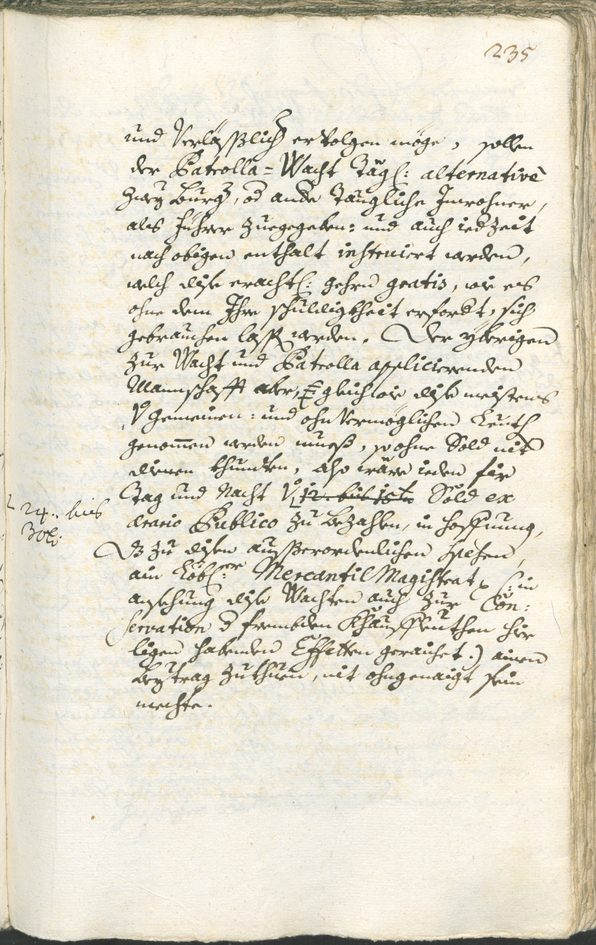 235
und Verläßlich erVolgen möge, sollen
der Patrolla-Wacht Tägl: alternative
zwey Burg:, od andre Taugliche Inwohner,
als Führer zuegegeben: und auch iedZeit
nach obigen enthalt instruiert werden,
welch dise erachtl: gehrn gratis, wie es
ohne dem Ihre schuldigkheit erfordt, sich
gebrauchen lass werden. Der ybrigen
zur Wacht und Patrolla applicierenden
Mannschafft aber, gleich wie dise meistens
V gemeinen: und ohnVermöglichen Leuth
genomen werden mueß, so ohne Sold nit
dienen khundten, also wäre ieden für
Tag und Nacht V 12 bis 15 Sold ex
24. bis
30
Aerario Publico zu bezahlen, in hoffnung,
Dz zu disen ausserordenlichen Spesen,
ain Löbl: Mercantil Magistrat (: in
ansehung dise Wachten auch zur Con:
servation d frembden Khauffleuthen hie
ligen habenden Effetten geraichet:) ainen
Beytrag zu thuen, nit ohngenaigt sein
mechte.